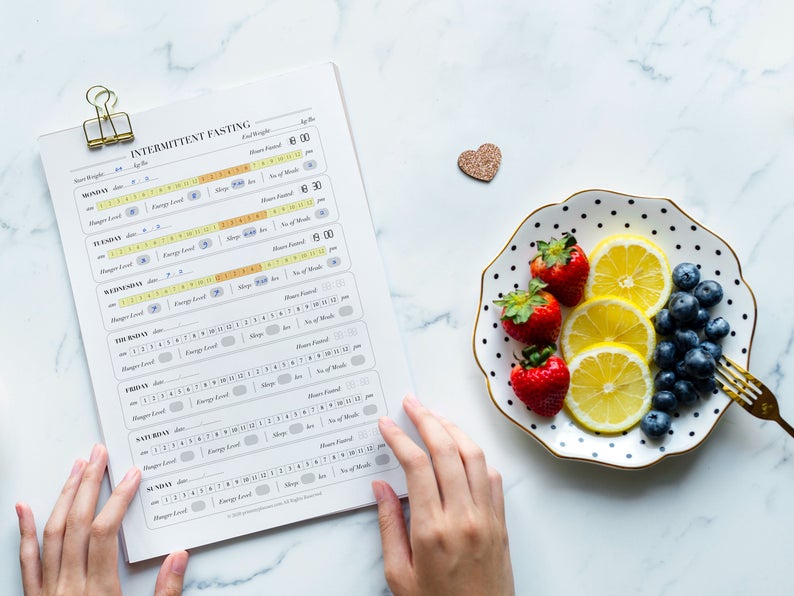 INTERMITTENT FASTING
Start Weight: 64 kg/lbs End Weight: kg/lbs
MONDAY date 5 / 2 Hours Fasted: 18 00
am 1 2 3 4 5 6 7 8 9 10 11 12 1 2 3 4 5 6 7 8 9 10 11 12 pm
Hunger Level: 5 Energy Level: 8 Sleep: 7.30 hrs No. of Meals: 2
TUESDAY date 6 / 2 Hours Fasted: 18 30
am 1 2 3 4 5 6 7 8 9 10 11 12 1 2 3 4 5 6 7 8 9 10 11 12 pm
Hunger Level: 3 Energy Level: 9 Sleep: 6.45 hrs No. of Meals: 2
WEDNESDAY date 7 / 2 Hours Fasted: 19 00
am 1 2 3 4 5 6 7 8 9 10 11 12 1 2 3 4 5 6 7 8 9 10 11 12 pm
Hunger Level: 7 Energy Level: 7 Sleep: 7.20 hrs No. of Meals: 2
THURSDAY date / Hours Fasted: 88:88
am 1 2 3 4 5 6 7 8 9 10 11 12 1 2 3 4 5 6 7 8 9 10 11 12 pm
Hunger Level: Energy Level: Sleep: hrs No. of Meals:
FRIDAY date / Hours Fasted: 88:88
am 1 2 3 4 5 6 7 8 9 10 11 12 1 2 3 4 5 6 7 8 9 10 11 12 pm
Hunger Level: Energy Level: Sleep: hrs No. of Meals:
SATURDAY date / Hours Fasted: 88:88
am 1 2 3 4 5 6 7 8 9 10 11 12 1 2 3 4 5 6 7 8 9 10 11 12 pm
Hunger Level: Energy Level: Sleep: hrs No. of Meals:
SUNDAY date / Hours Fasted: 88:88
am 1 2 3 4 5 6 7 8 9 10 11 12 1 2 3 4 5 6 7 8 9 10 11 12 pm
Hunger Level: Energy Level: Sleep: hrs No. of Meals:
All Rights Reserved